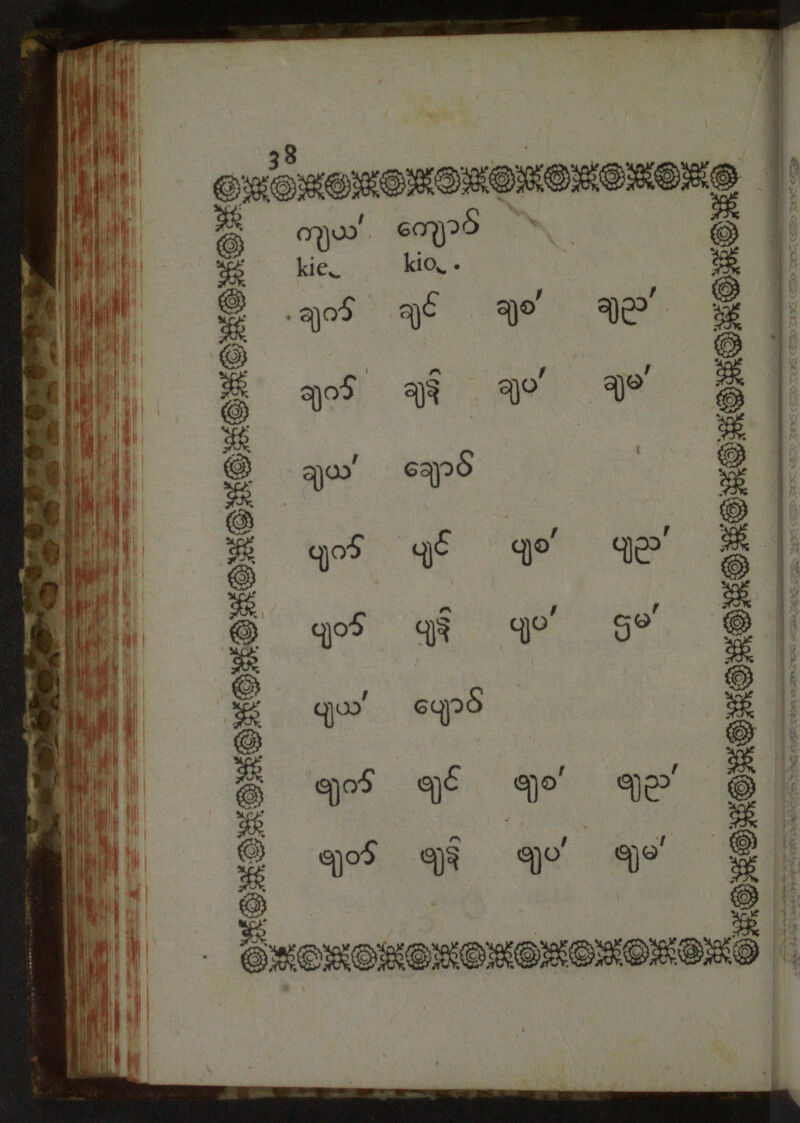 38
ကျယ် ကျောင်
kie kio.
ချက် ချင် ချစ် ချည်
ချက် ချန် ချပ် ချမ်
ချယ် ချောင်
ပျက် ပျင် ပျစ် ပျည်
ပျတ် ပျန် ပျပ် ဌမ်
ပျယ် ပျောင်
ဖျက် ဖျင် ဖျစ် ဖျည်
ဖျတ် ဖျန် ဖျပ် ဖျမ်